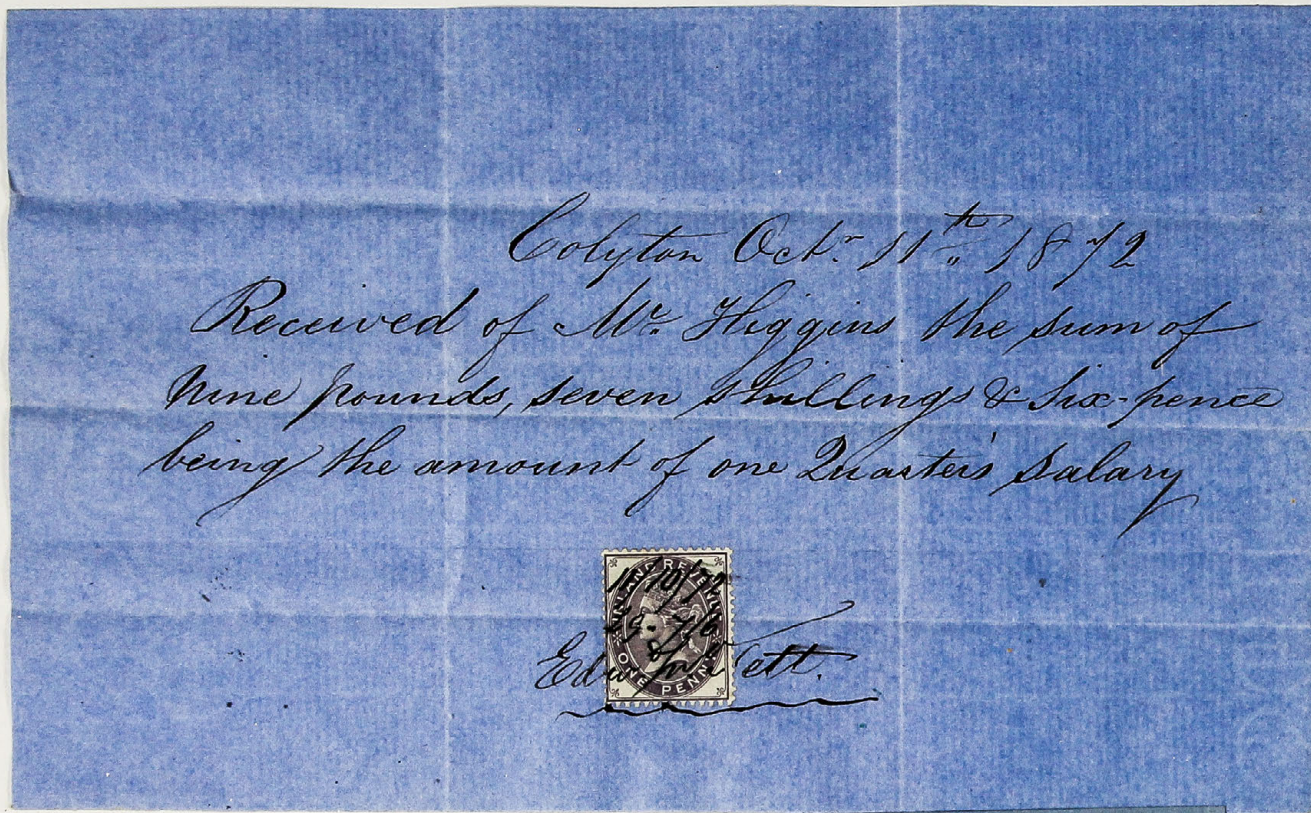 Colyton Octr. 11th 1872
Received of Mr. Higgins the sum of
nine pounds, seven shillings & Six-pence
being the amount of one Quarter's salary
INLAND REVENUE
11/10/72
£9-7/6
ONE PENNY